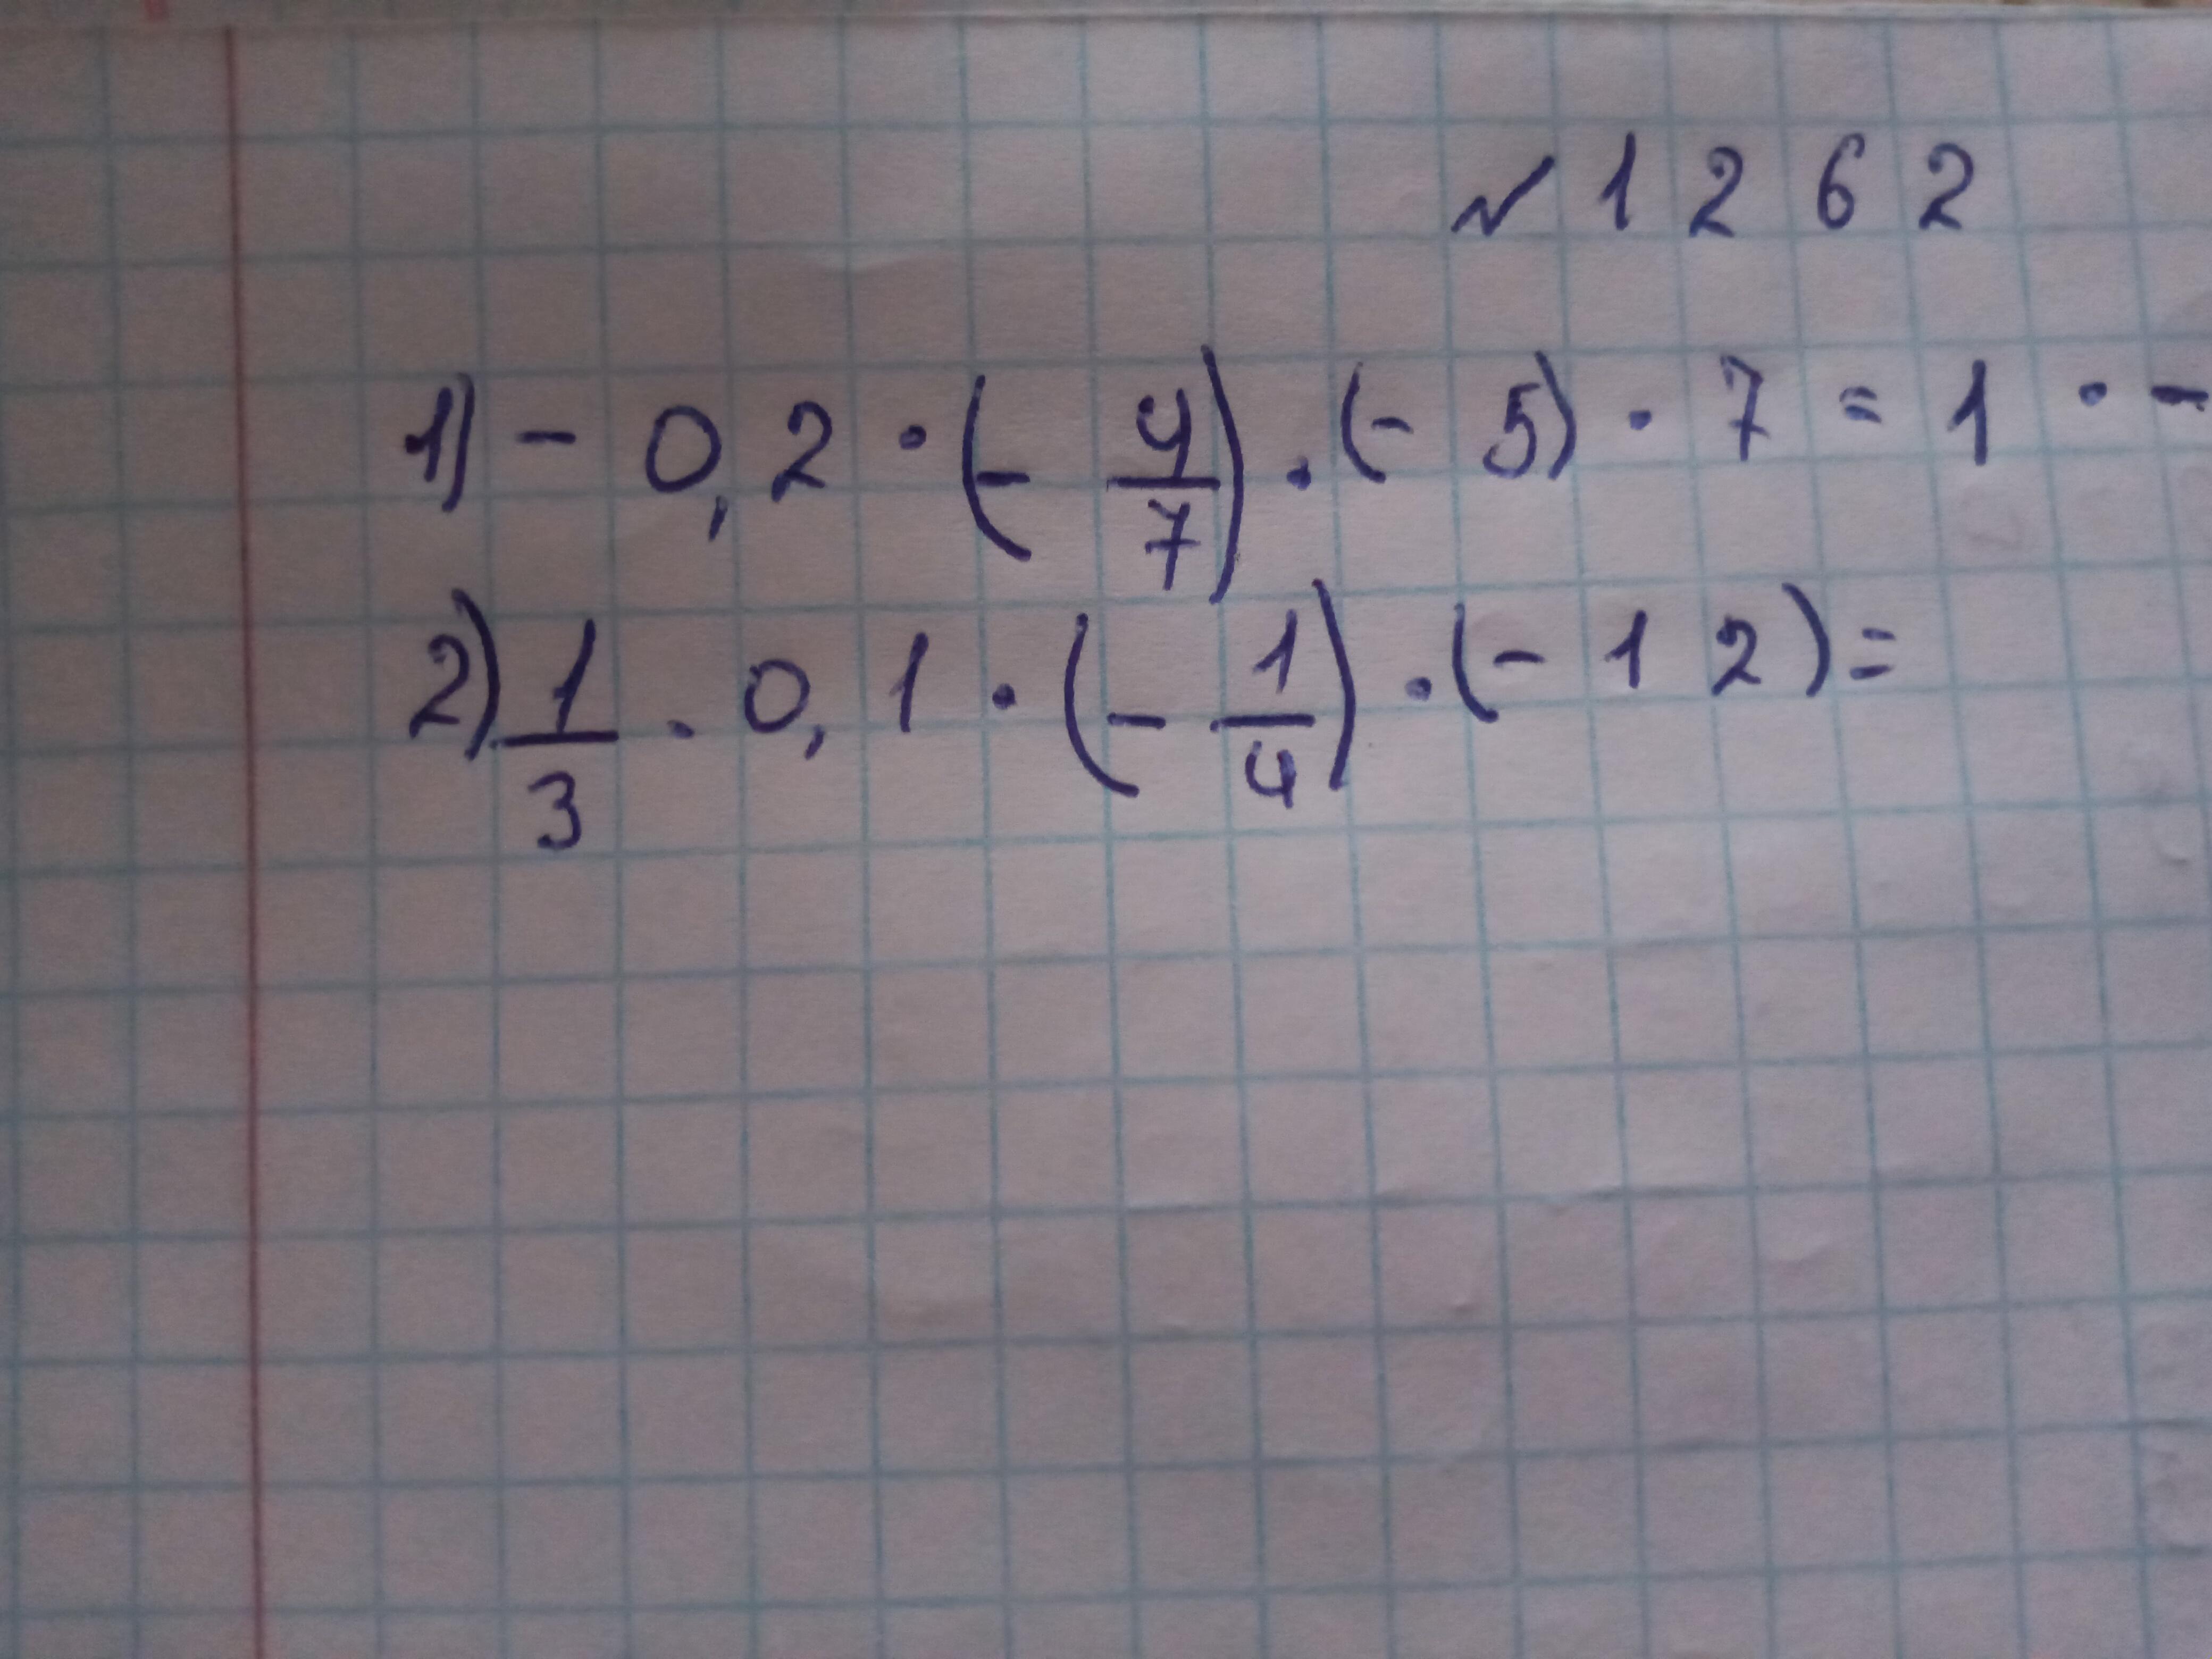 № 1262
1) - 0,2 · (- 4/7) · (- 5) · 7 = 1 · -
2) 1/3 · 0,1 · (- 1/4) · (- 12) =